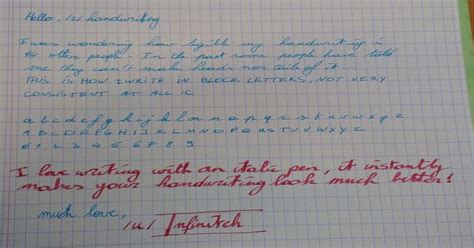 Hello, /r/ handwriting
I was wondering how legible my handwriting is
to other people. In the past some people have told
me they can't make heads nor tails of it.
THIS IS HOW I WRITE IN BLOCK LETTERS, NOT VERY
CONSISTENT AT ALL :(
a b c d e f g h i j k l m n o p q r s t u v w x y z
A B C D E F G H I J K L M N O P Q R S T U V W X Y Z
0 1 2 3 4 5 6 7 8 9
I love writing with an italic pen, it instantly
makes your handwriting look much better!
much love,
/u/ Infinitch